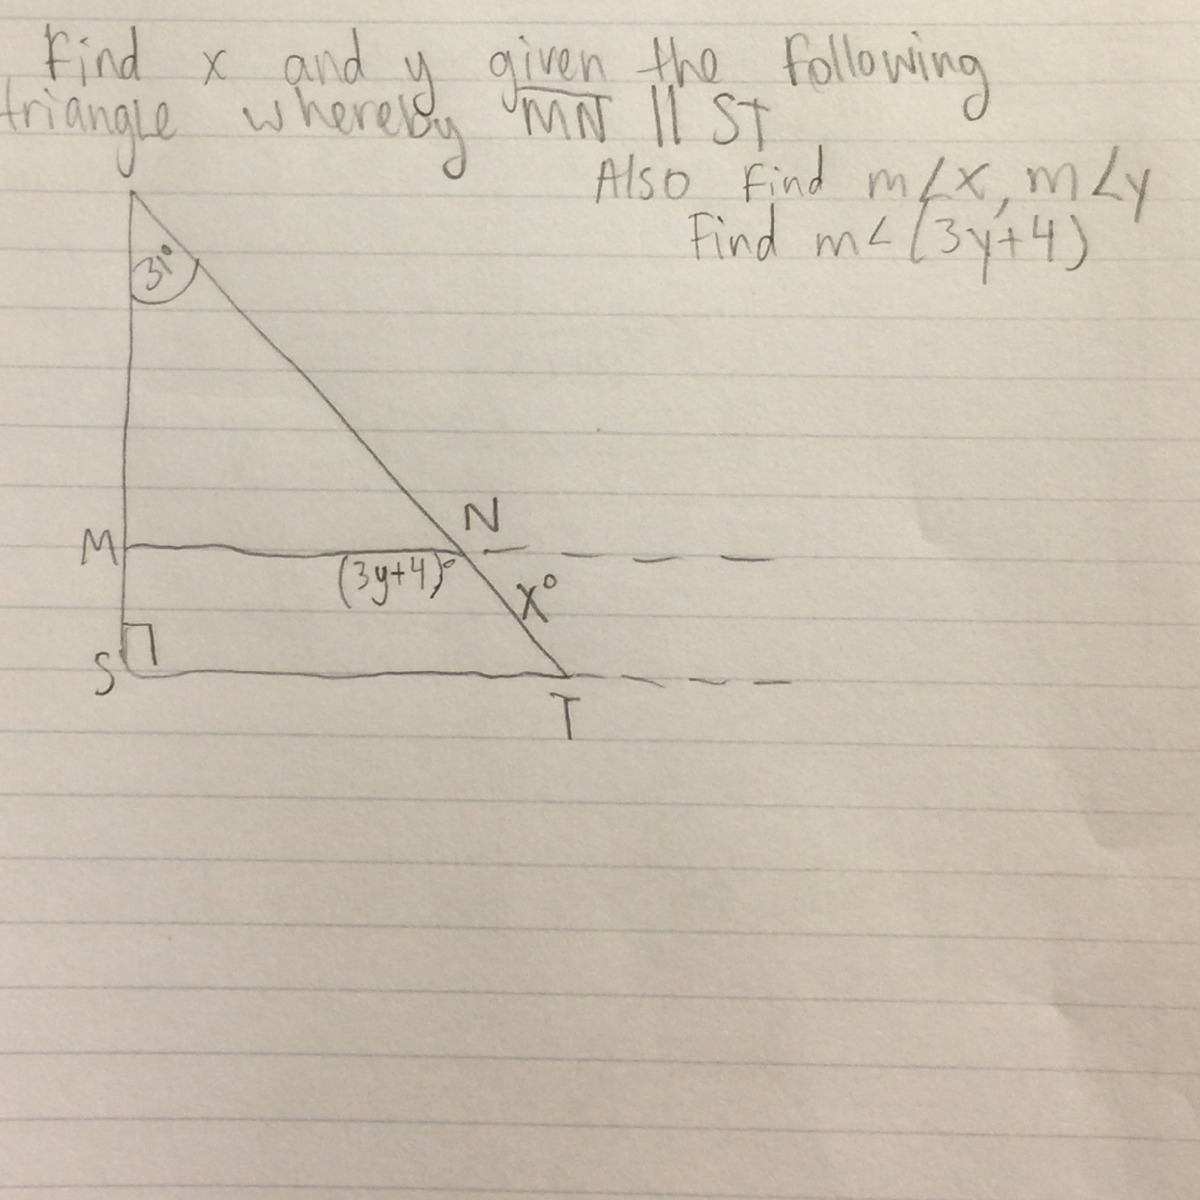 Find x and y given the following
triangle whereby MN || ST
Also find m∠x, m∠y
Find m∠(3y+4)
31°
N
M
(3y+4)°
x°
S
T